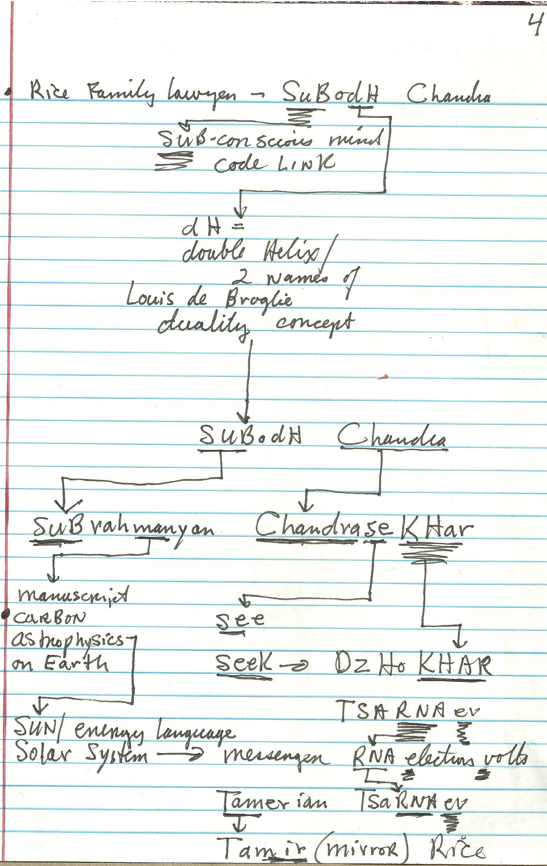 4
• Rice Family Lawyer – SuBodH Chandra
SuB-conscious mind
code LINK
dH =
double Helix/
2 names of
Louis de Broglie
duality concept
SUBodH Chandra
SuBrahmanyan ChandraseKHar
manuscript
• CARBON
astrophysics
on Earth
see
seek → DzHoKHAR
TSARNAev
SUN/energy language
Solar System → messenger RNA electron volts
Tamerian TsaRNAev
Tamir (mirror) Rice